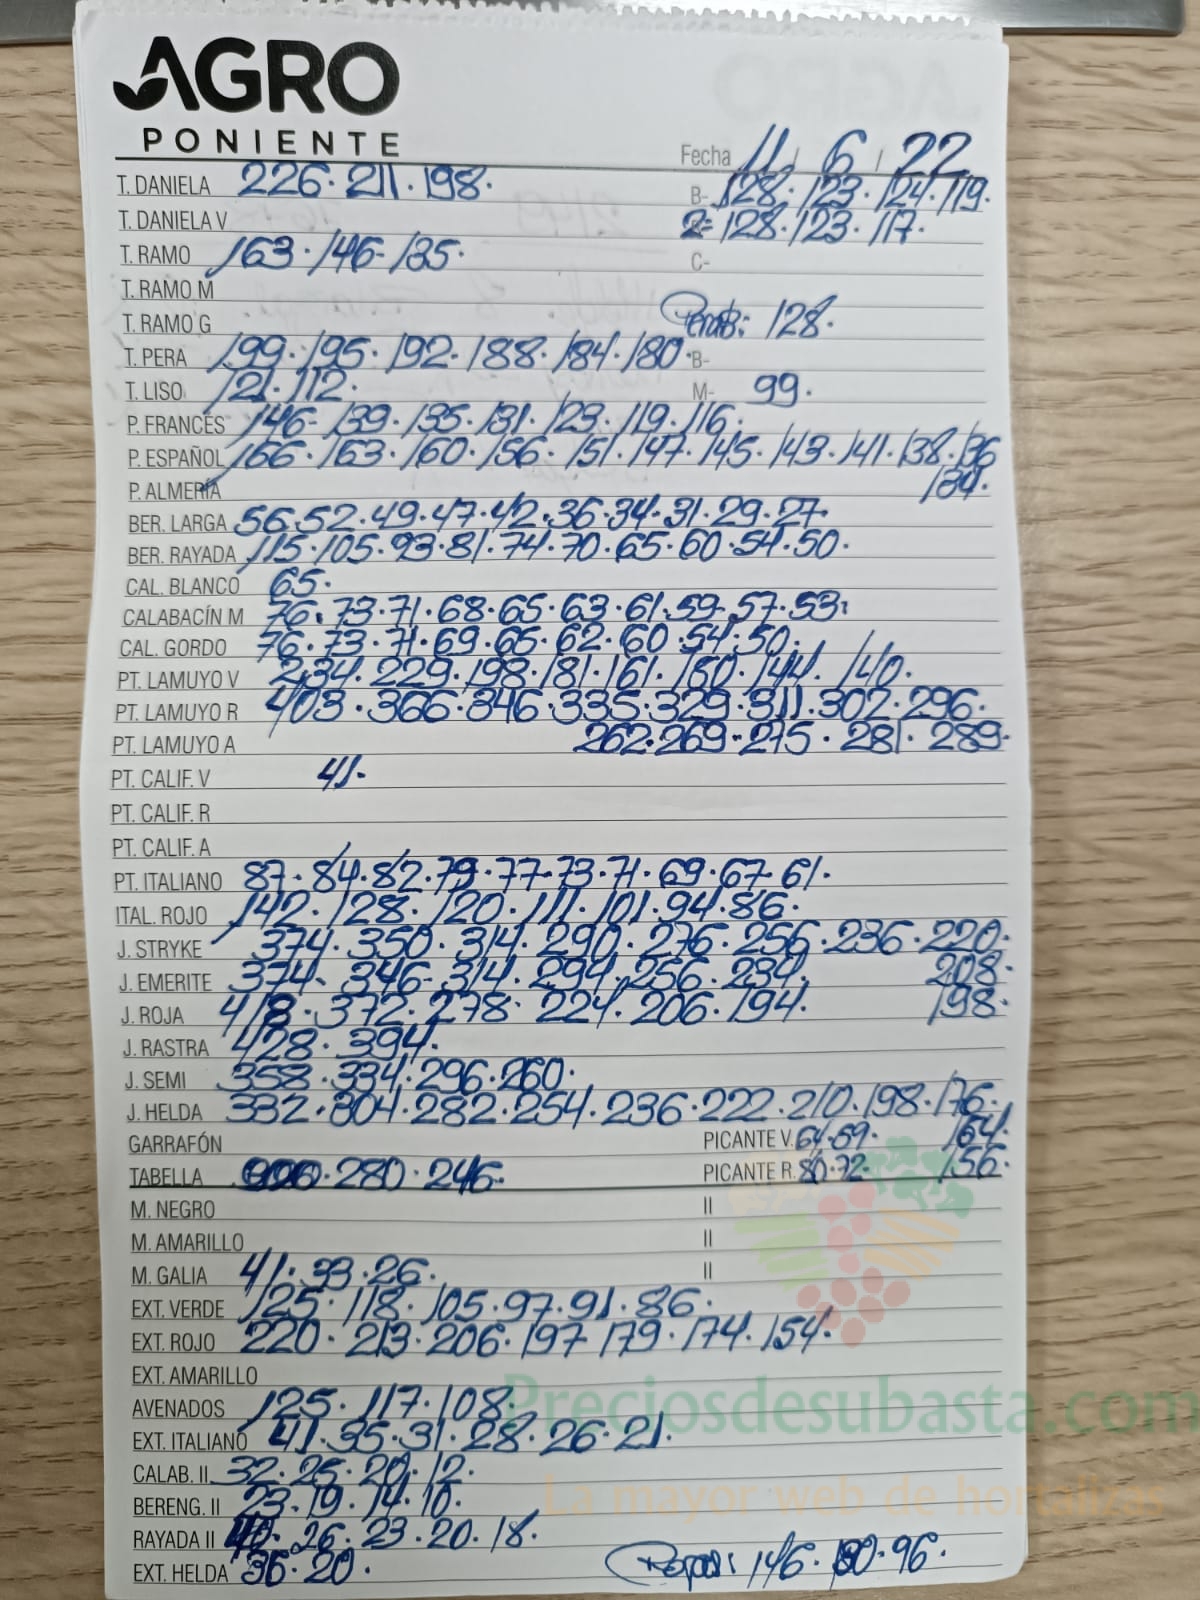 AGRO
PONIENTE
Fecha 11 / 6 / 22
T. DANIELA 226. 211. 198. B- 128. 123. 124. 119.
T. DANIELA V 2= 128. 123. 117.
T. RAMO 163. 146- 135. C-
T. RAMO M
T. RAMO G 128.
T. PERA 199. 195. 192. 188. 184. 180. B-
T. LISO 121. 112. M- 99.
P. FRANCÉS 146- 139. 135. 131. 123. 119. 116.
P. ESPAÑOL 166. 163. 160. 156. 151. 147. 145. 143. 141. 138. 136
P. ALMERÍA 134.
BER. LARGA 56.52.49.47.42.36.34.31.29.27.
BER. RAYADA 115.105.93.81.74.70.65.60.54.50.
CAL. BLANCO 65.
CALABACÍN M 76.73.71.68.65.63.61.59.57.53.
CAL. GORDO 76.73.71.69.65.62.60.54.50.
PT. LAMUYO V 234.229.198.181.161.150.144.140.
PT. LAMUYO R 403.366.346.335.329.311.302.296.
PT. LAMUYO A 262.269-275.281.289.
PT. CALIF. V 41.
PT. CALIF. R
PT. CALIF. A
PT. ITALIANO 87.84.82.79.77.73.71.69.67.61.
ITAL. ROJO 142.128.120.111.101.94.86.
J. STRYKE 374.350.314.290.276.256.236.220.
J. EMERITE 374.346-314.294.256.234. 208.
J. ROJA 418.372.278.224.206.194. 198.
J. RASTRA 428.394.
J. SEMI 358.334.296.260.
J. HELDA 332.304.282.254.236.222.210.198.176.
GARRAFÓN PICANTE V. 64.59. 164.
TABELLA 280.246. PICANTE R. 80.72. 156.
M. NEGRO II
M. AMARILLO II
M. GALIA 41.33.26. II
EXT. VERDE 125.118.105.97.91.86.
EXT. ROJO 220.213.206.197 179.174.154.
EXT. AMARILLO
AVENADOS 125.117.108.
Preciosdesubasta.com
EXT. ITALIANO 41.35.31.28.26.21.
CALAB. II 32.25.20.12.
La mayor web de hortalizas
BERENG. II 23.19.14.10.
RAYADA II 40.26.23.20.18.
EXT. HELDA 36.20. 146. 130.96.